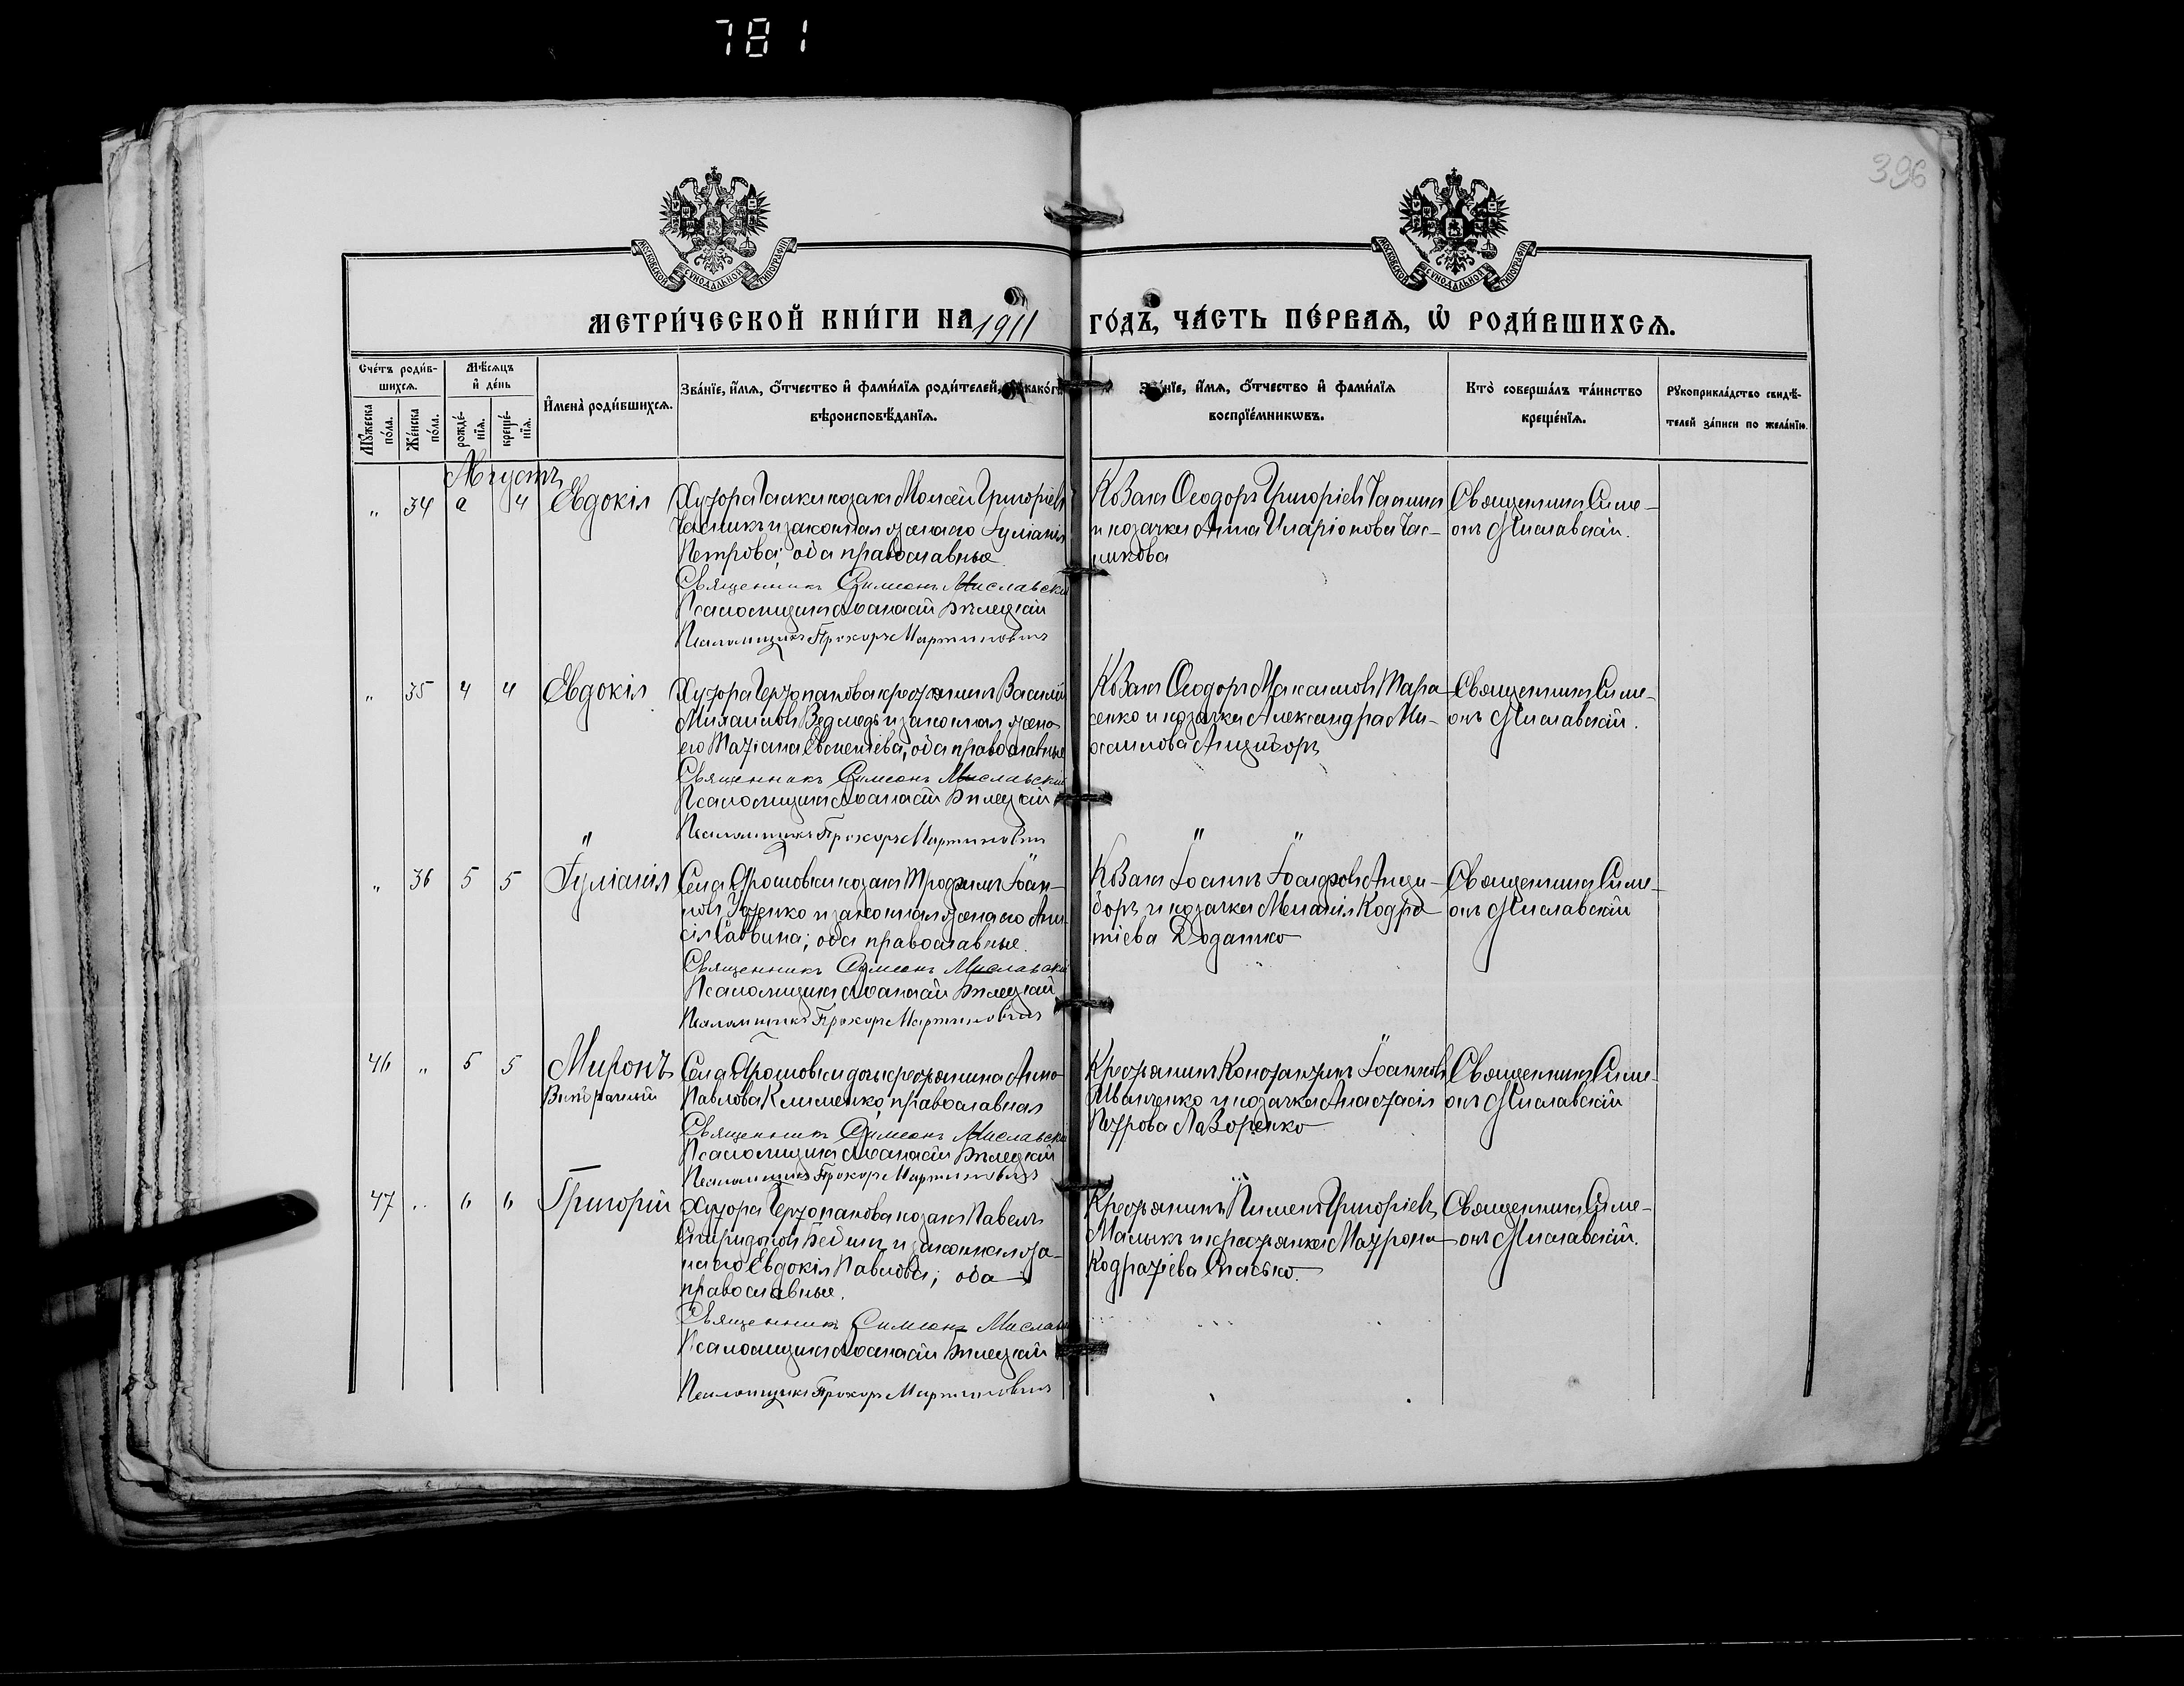 781
396
МОСКОВСКОЙ СѴНОДАЛЬНОЙ ТИПОГРАФІИ
МОСКОВСКОЙ СѴНОДАЛЬНОЙ ТИПОГРАФІИ
МЕТРИ́ЧЕСКОЙ КНИ́ГИ НА 1911 ГО́ДЪ, ЧА́СТЬ ПЕ́РВАЯ, Ѡ РОДИ́ВШИХСЯ.
Сче́тъ роди́в-
шихся.
Мѣ́сяцъ
и де́нь
Му́жеска
по́ла.
Же́нска
по́ла.
рожде́-
нїя.
креще́-
нїя.
Имена̀ роди́вшихся.
Зва́нїе, и́мя, о́тчество и фами́лїя роди́телей,
вѣроисповѣ́данїя.
и́мя, о́тчество и фами́лїя
воспрїе́мникѡвъ.
Кто̀ соверша́лъ та́инство
креще́нїя.
Рукоприкла́дство свидѣ́-
телей за́писи по жела́нїю.
Августъ
" 34 2 4 Евдокія
Хутора козакъ Моисей Григоріевъ
и законная жена его Іуліанія
Петрова; оба православные
Священникъ Симеонъ Миславскій
Псаломщикъ Аѳанасій Бѣлецкій
Псаломщикъ Прохоръ Мартиновичъ
Козакъ Ѳеодоръ Григоріевъ
и козачка Анна Иларіонова Час-
никова
Священникъ Симе-
онъ Миславскій.
" 35 4 4 Евдокія
Хутора крестьянинъ Василій
Михаиловъ Ведмедь и законная жена
его Татіана Евсентіева, оба православные
Священникъ Симеонъ Миславскій
Псаломщикъ Аѳанасій Бѣлецкій
Псаломщикъ Прохоръ Мартиновичъ
Козакъ Ѳеодоръ Максимовъ Тара-
сенко и козачка Александра Ми-
хаилова Анциборъ
Священникъ Симе-
онъ Миславскій.
" 36 5 5 Іуліанія
Села Ярошовки козакъ Трофимъ Іоан-
новъ и законная жена его Ани-
сія Саввина; оба православные.
Священникъ Симеонъ Миславскій
Псаломщикъ Аѳанасій Бѣлецкій
Псаломщикъ Прохоръ Мартиновичъ
Козакъ Іоаннъ Анци-
боръ и козачка Меланія Кодра-
тіева
Священникъ Симе-
онъ Миславскій
46 " 5 5 Миронъ
Внѣбрачный
Села Ярошовки дочь крестьянина Анна
Павлова Клименко, православная
Священникъ Симеонъ Миславскій
Псаломщикъ Аѳанасій Бѣлецкій
Псаломщикъ Прохоръ Мартиновичъ
Крестьянинъ Іоанновъ
Иванченко и козачка Анастасія
Петрова Лазоренко
Священникъ Симе-
онъ Миславскій
47 " 6 6 Григорій
Хутора козакъ Павелъ
Спиридоновъ и законная же-
на его Евдокія Павлова; оба
православные.
Священникъ Симеонъ Миславскій
Псаломщикъ Аѳанасій Бѣлецкій
Псаломщикъ Прохоръ Мартиновичъ
Крестьянинъ Пименъ Григоріевъ
Малыкъ и крестьянка Матрона
Кодратіева
Священникъ Симе-
онъ Миславскій.